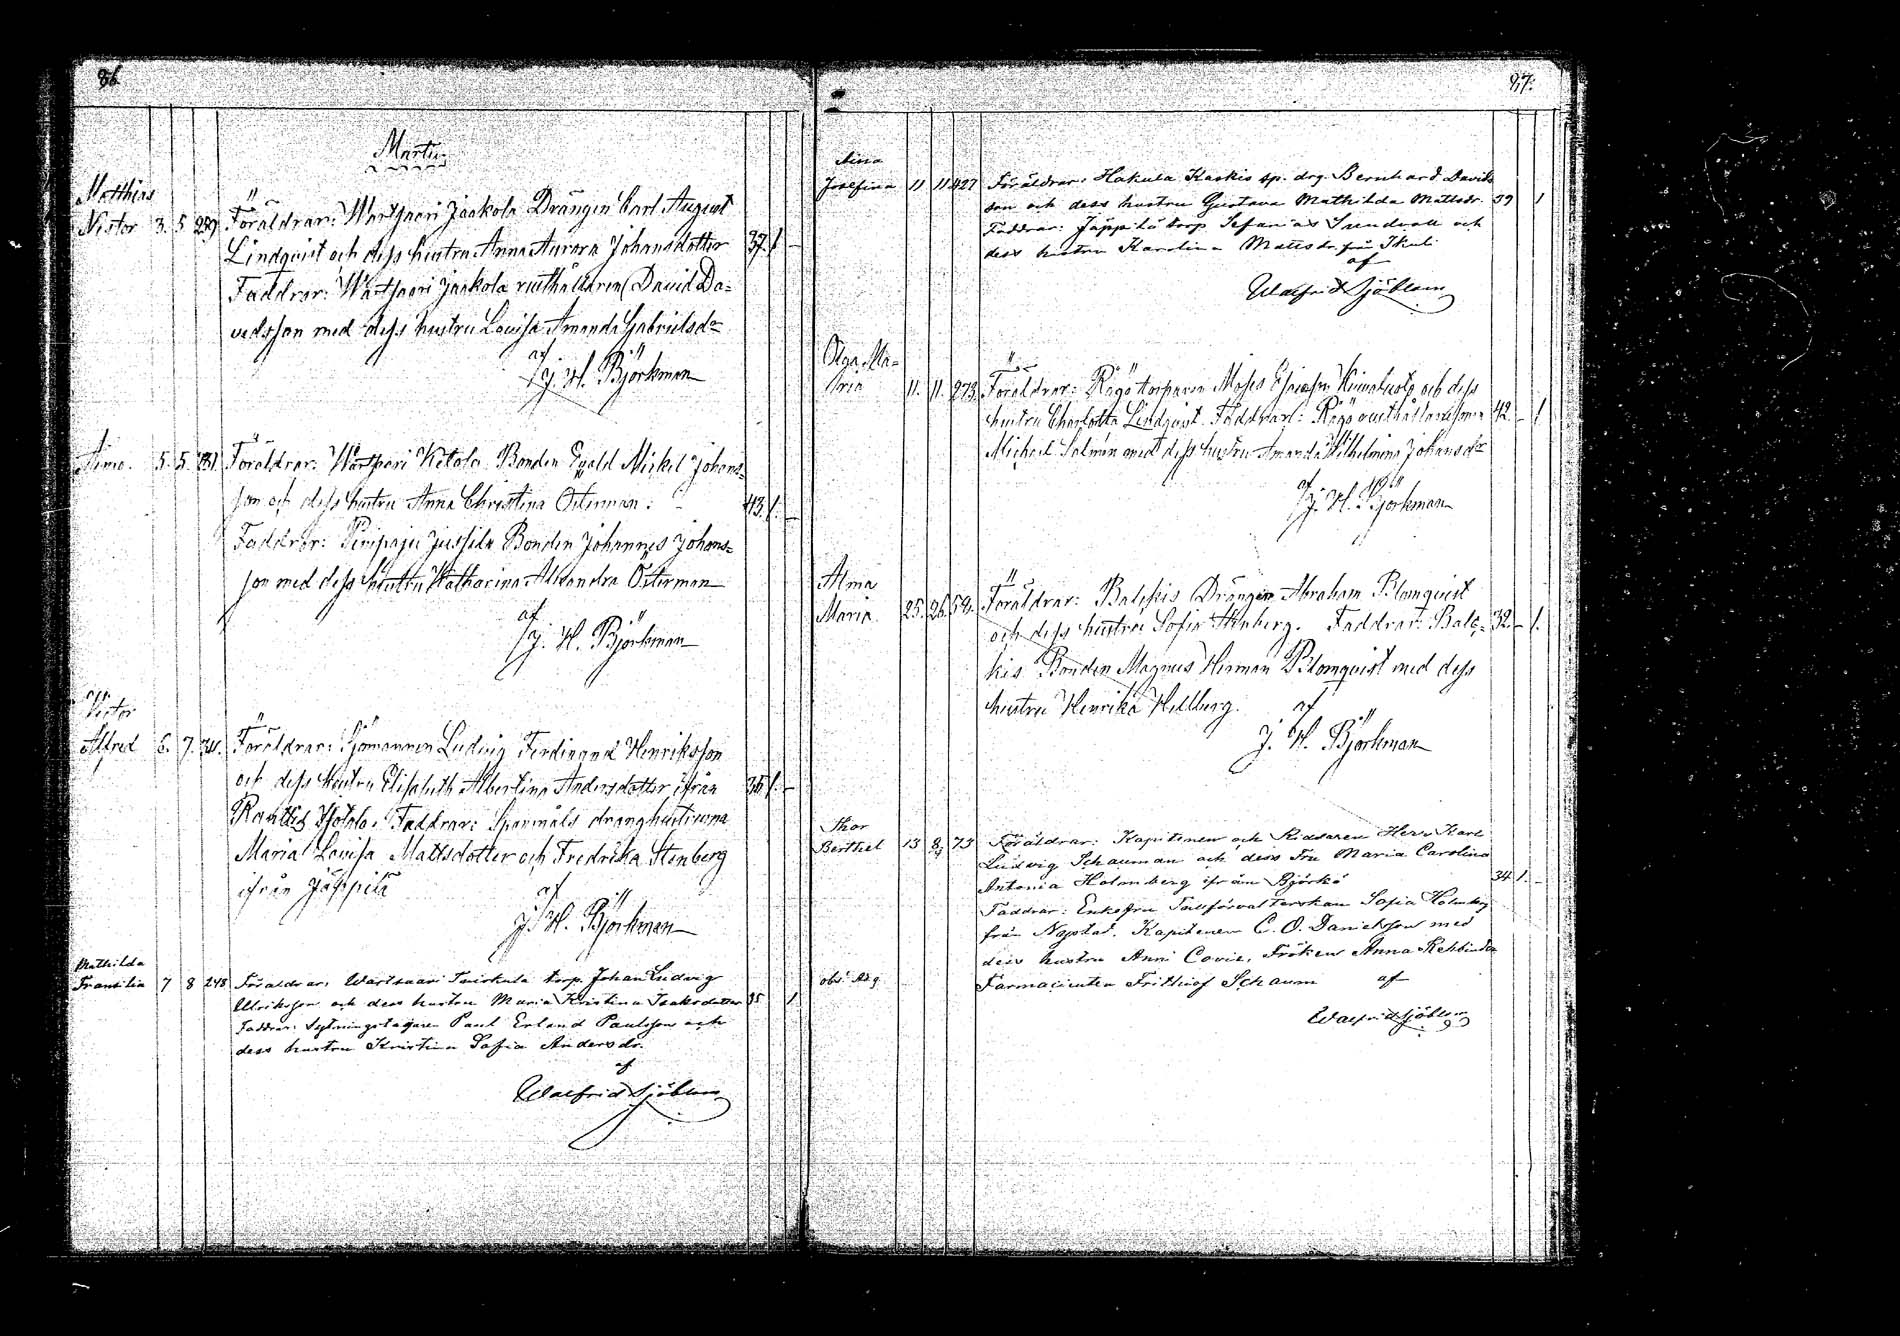 86.
Martii.
Matthias
Nestor 3. 5. 259 Föräldrar: Wartsaari Jaakola Drängen Carl August
Lindqvist och dess hustru Anna Aurora Johansdotter 37. 1. –
Faddrar: Wartsaari Jaakola rusthållaren David Da=
vidsson med dess hustru Lovisa Amanda Gabrielsdr
af
J. H. Björkman
Aimo. 5. 5. 281. Föräldrar: Wartsaari Ketola Bonden Evald Mickel Johans=
son och dess hustru Anna Christina Österman: 43. 1. –
Faddrar: Jussila Bonden Johannes Johans=
son med dess hustru Katharina Alexandra Österman
af
J. H. Björkman
Victor
Alfred 6. 7. Föräldrar: Sjömannen Ludvig Ferdinand Henriksson
och dess hustru Elisabeth Albertina Andersdotter ifrån 1. –
Faddrar: dränghustrurna
Maria Lovisa Mattsdotter och Fredrika Stenberg
ifrån Jäppilä
af
J. H. Björkman
Mathilda
Fransilia 7 8 248 Föräldrar: Wartsaari torp. Johan Ludvig
Ulriksson och dess hustru Maria Kristina Isaksdotter 35 1
Faddrar: Sytningstagaren Paul Erland Paulsson och
dess hustru Kristina Sofia Andersdr.
af
Walfrid Sjöblom
87.
Aina
Josefina 11 11 427 Föräldrar: Hakula Kaskis sp. drg. Bernhard Davids
son och dess hustru Gustava Mathilda Mattsdr. 39 1
Faddrar: Jäppilä torp. Sefanias Sundvall och
dess hustru Karolina Mattsdr. från
af
Walfrid Sjöblom
Olga Ma=
ria 11. 11. 273. Föräldrar: Rögö torparen Moses och dess
hustru Charlotta Lindqvist. Faddrar: Rögö rusthållaresonen 42. – 1.
Michael Salmén med dess hustru Amanda Wilhelmina Johansdr
af
J. H. Björkman
Alma
Maria 25. 26. 52. Föräldrar: Balckis Drängen Abraham Blomqvist
och dess hustru Sofia Stenberg. Faddrar: Balc= 32. – 1.
kis Bonden Magnus Herman Blomqvist med dess
hustru Henrika Hellberg.
af
J. H. Björkman
Thor
Berthel 13 8/4 73 Föräldrar: Kapitenen och Riddaren Herr Karl
Ludvig Schauman och dess Fru Maria Carolina
Antonia Holmberg ifrån Björkö 34 1. –
Faddrar: Enkefru Tullförvalterskan Sofia Holmberg
från Nystad. Kapitenen C. O. Danielsson med
dess hustru Anni Fröken Anna Rehbinder
Farmaceuten Frithiof Schaum af
Walfrid Sjöblom